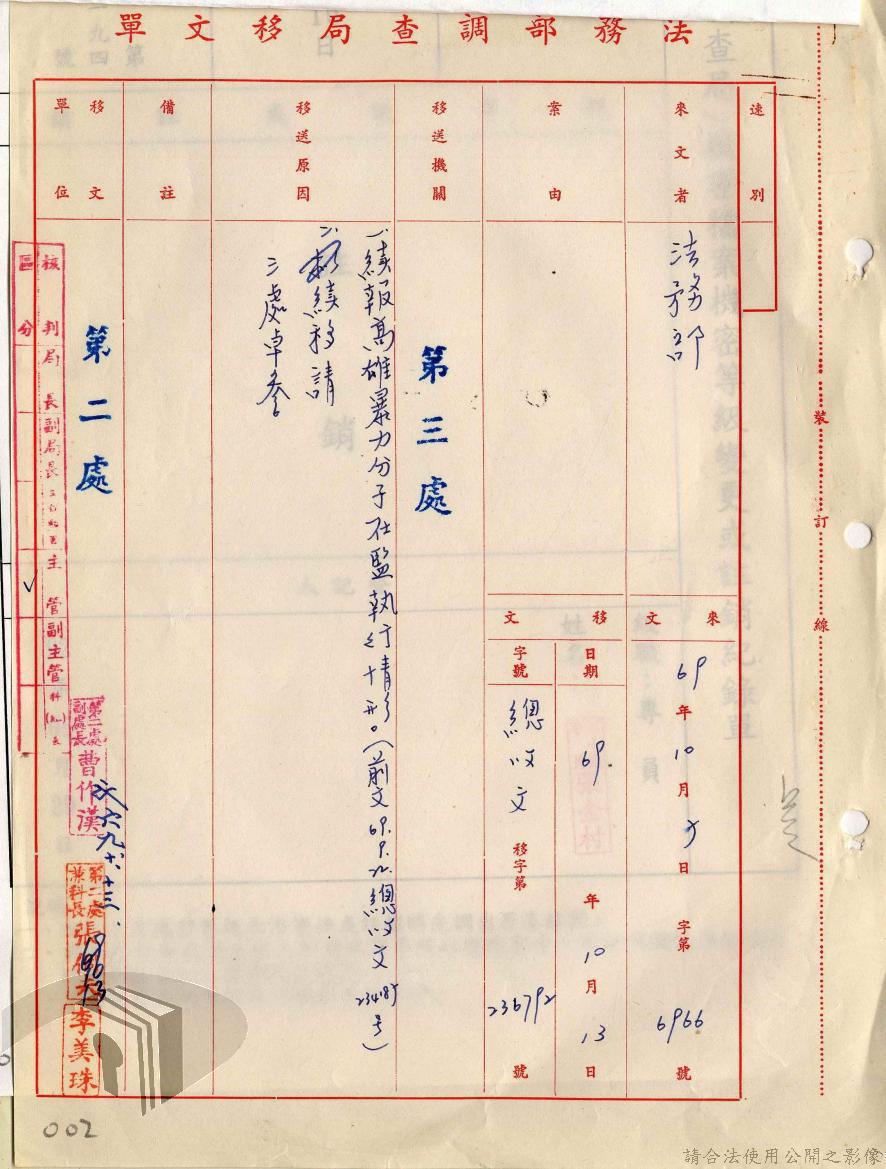 法務部調查局移文單
速別
來文者
法務部
來文
69年10月9日
字第6966號
案由
移文
日期
69年10月13日
字號
總收文移字第236792號
移送機關
第三處
移送原因
一、續報高雄暴力分子在監執行情形。(前文69.9.22總收文234185號)
二、敬續移請
三處卓參
備註
移文單位
第二處
核判區分
局長
副局長
主管
副主管
第二處副處長曹作漢
六九、十、十三、
第二處兼科長張
李美珠
裝訂線
查局
檔案機密等級變更或註銷紀錄單
註銷
002
請合法使用公開之影像